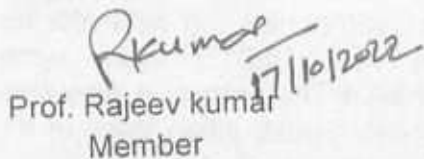 Rkumar
17/10/2022
Prof. Rajeev kumar
Member